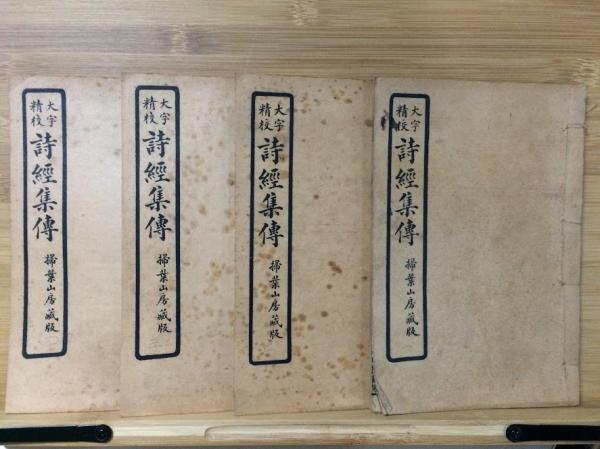 大字
精校
詩經集傳
掃葉山房藏版
大字
精校
詩經集傳
掃葉山房藏版
大字
精校
詩經集傳
掃葉山房藏版
大字
精校
詩經集傳
掃葉山房藏版